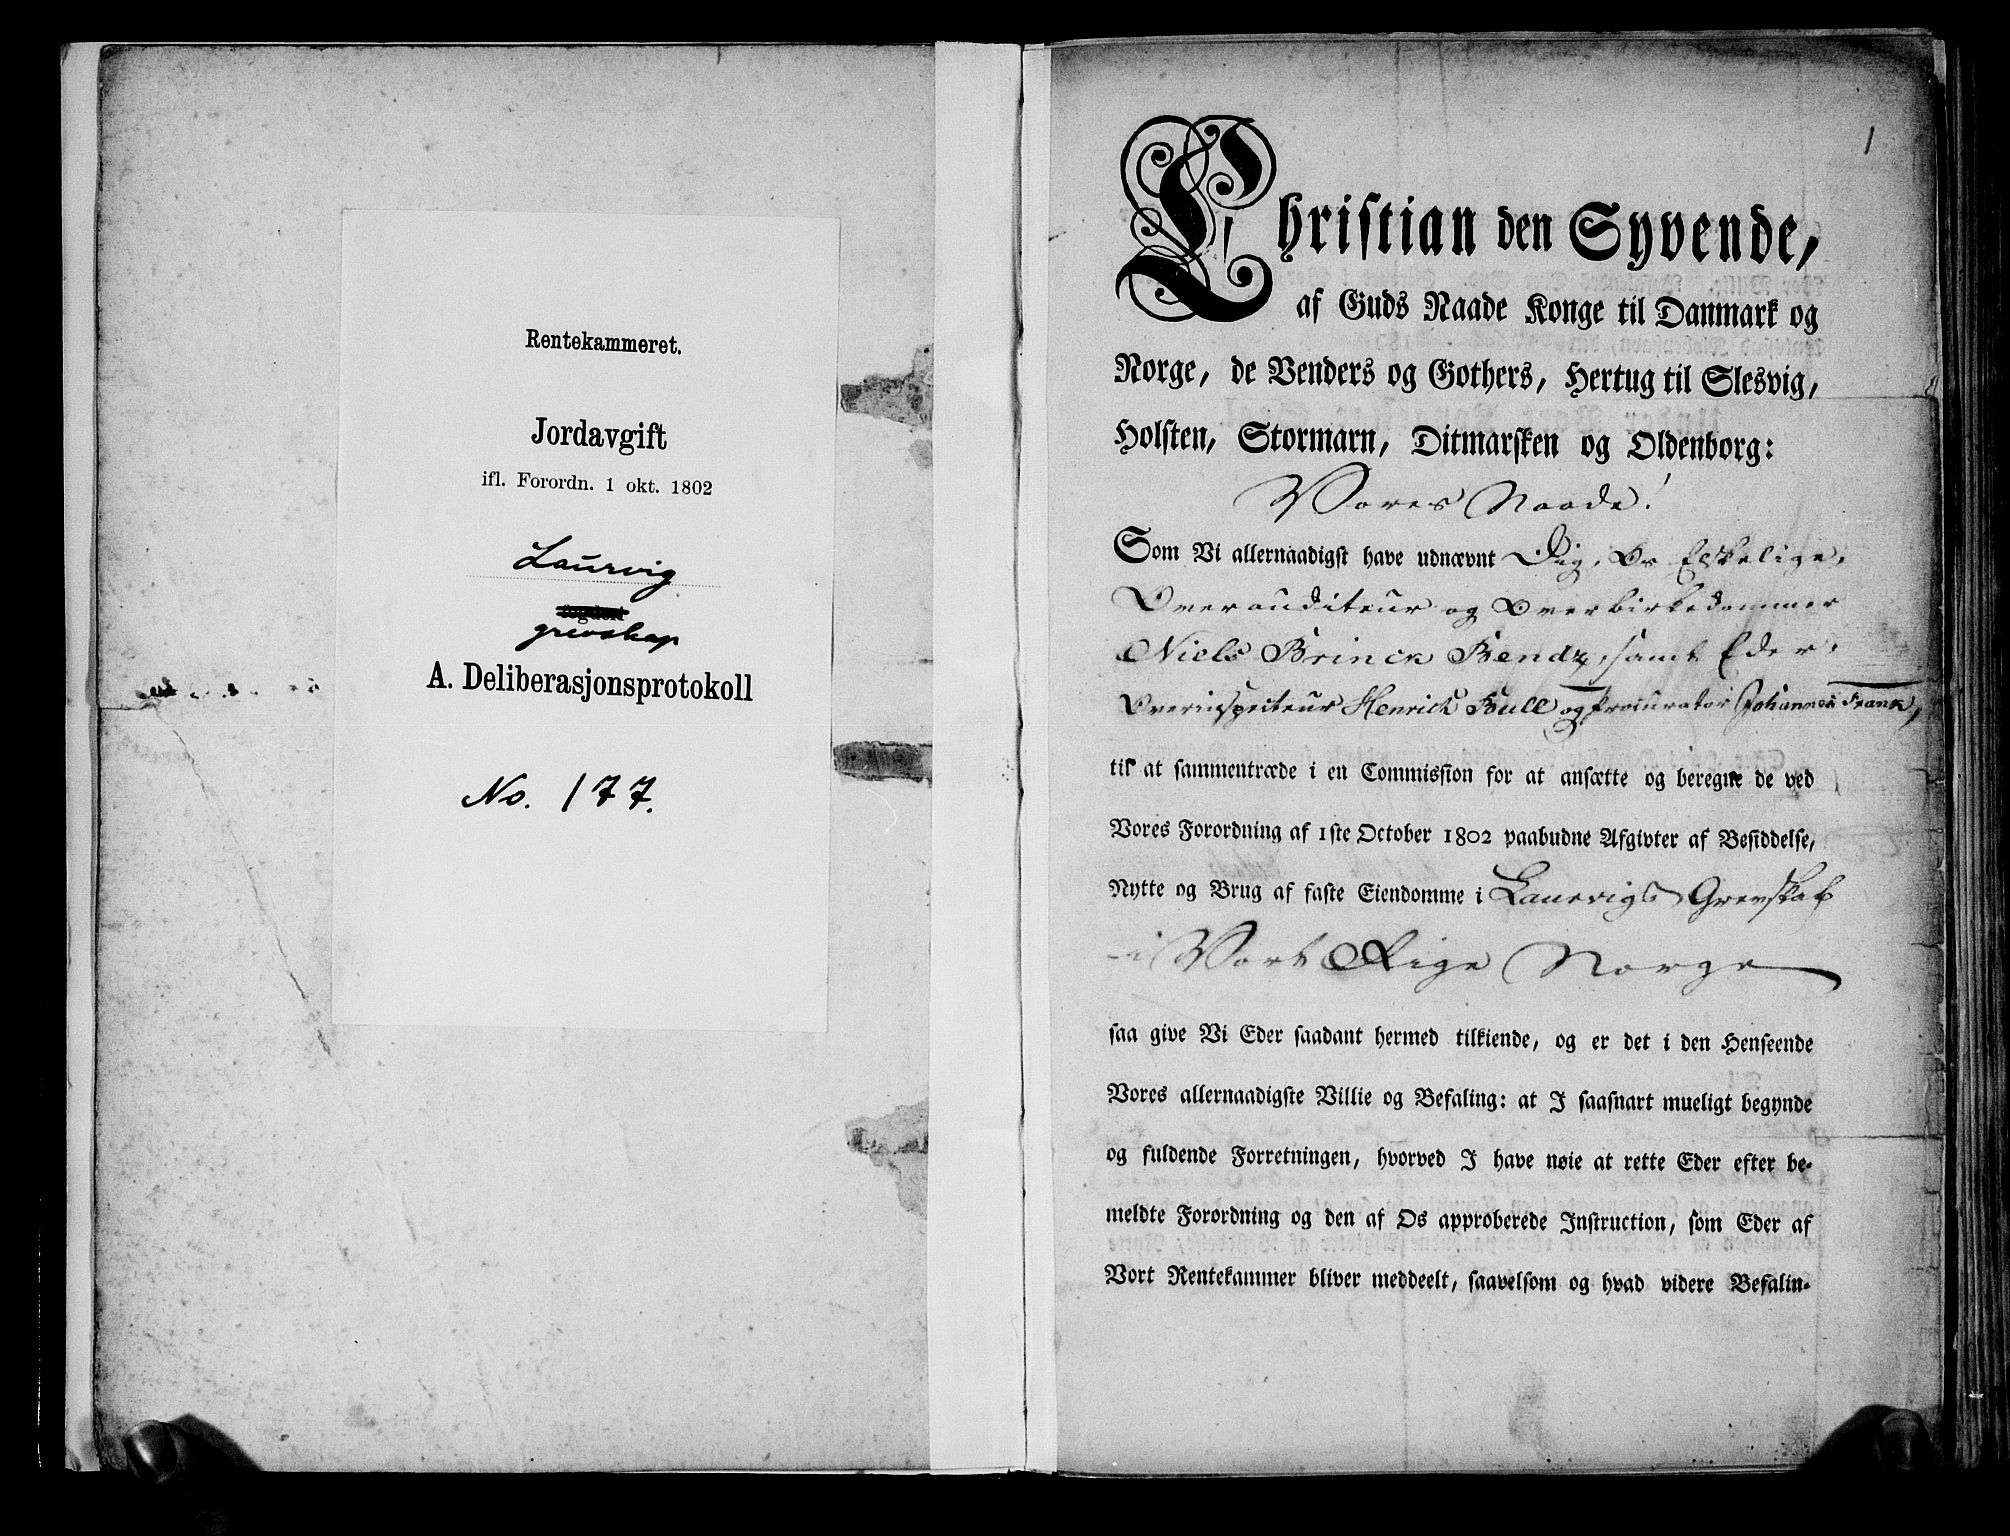 Rentekammeret.
Jordavgift
ifl. Forordn. 1 okt. 1802
Laurvig
grevskap
A. Deliberasjonsprotokoll
No. 177.
1
Christian den Syvende,
af Guds Naade Konge til Danmark og
Norge, de Venders og Gothers, Hertug til Slesvig,
Holsten, Stormarn, Ditmarsken og Oldenborg:
Vores Naade!
Som Vi allernaadigst have udnævnt Dig, Os Elskelige,
Overauditeur og Overbirkedommer
Niels Brinck Bendz, samt Eder,
Overinspecteur Henrick Bull og Procurator Johannes Frank,
til at sammentræde i en Commission for at ansætte og beregne de ved
Vores Forordning af 1ste October 1802 paabudne Afgivter af Besiddelse,
Nytte og Brug af faste Eiendomme i Laurvigs Grevskab
i Vort Rige Norge
saa give Vi Eder saadant hermed tilkiende, og er det i den Henseende
Vores allernaadigste Villie og Befaling: at I saasnart mueligt begynde
og fuldende Forretningen, hvorved I have nøie at rette Eder efter be-
meldte Forordning og den af Os approberede Instruction, som Eder af
Vort Rentekammer bliver meddeelt, saavelsom og hvad videre Befalin-